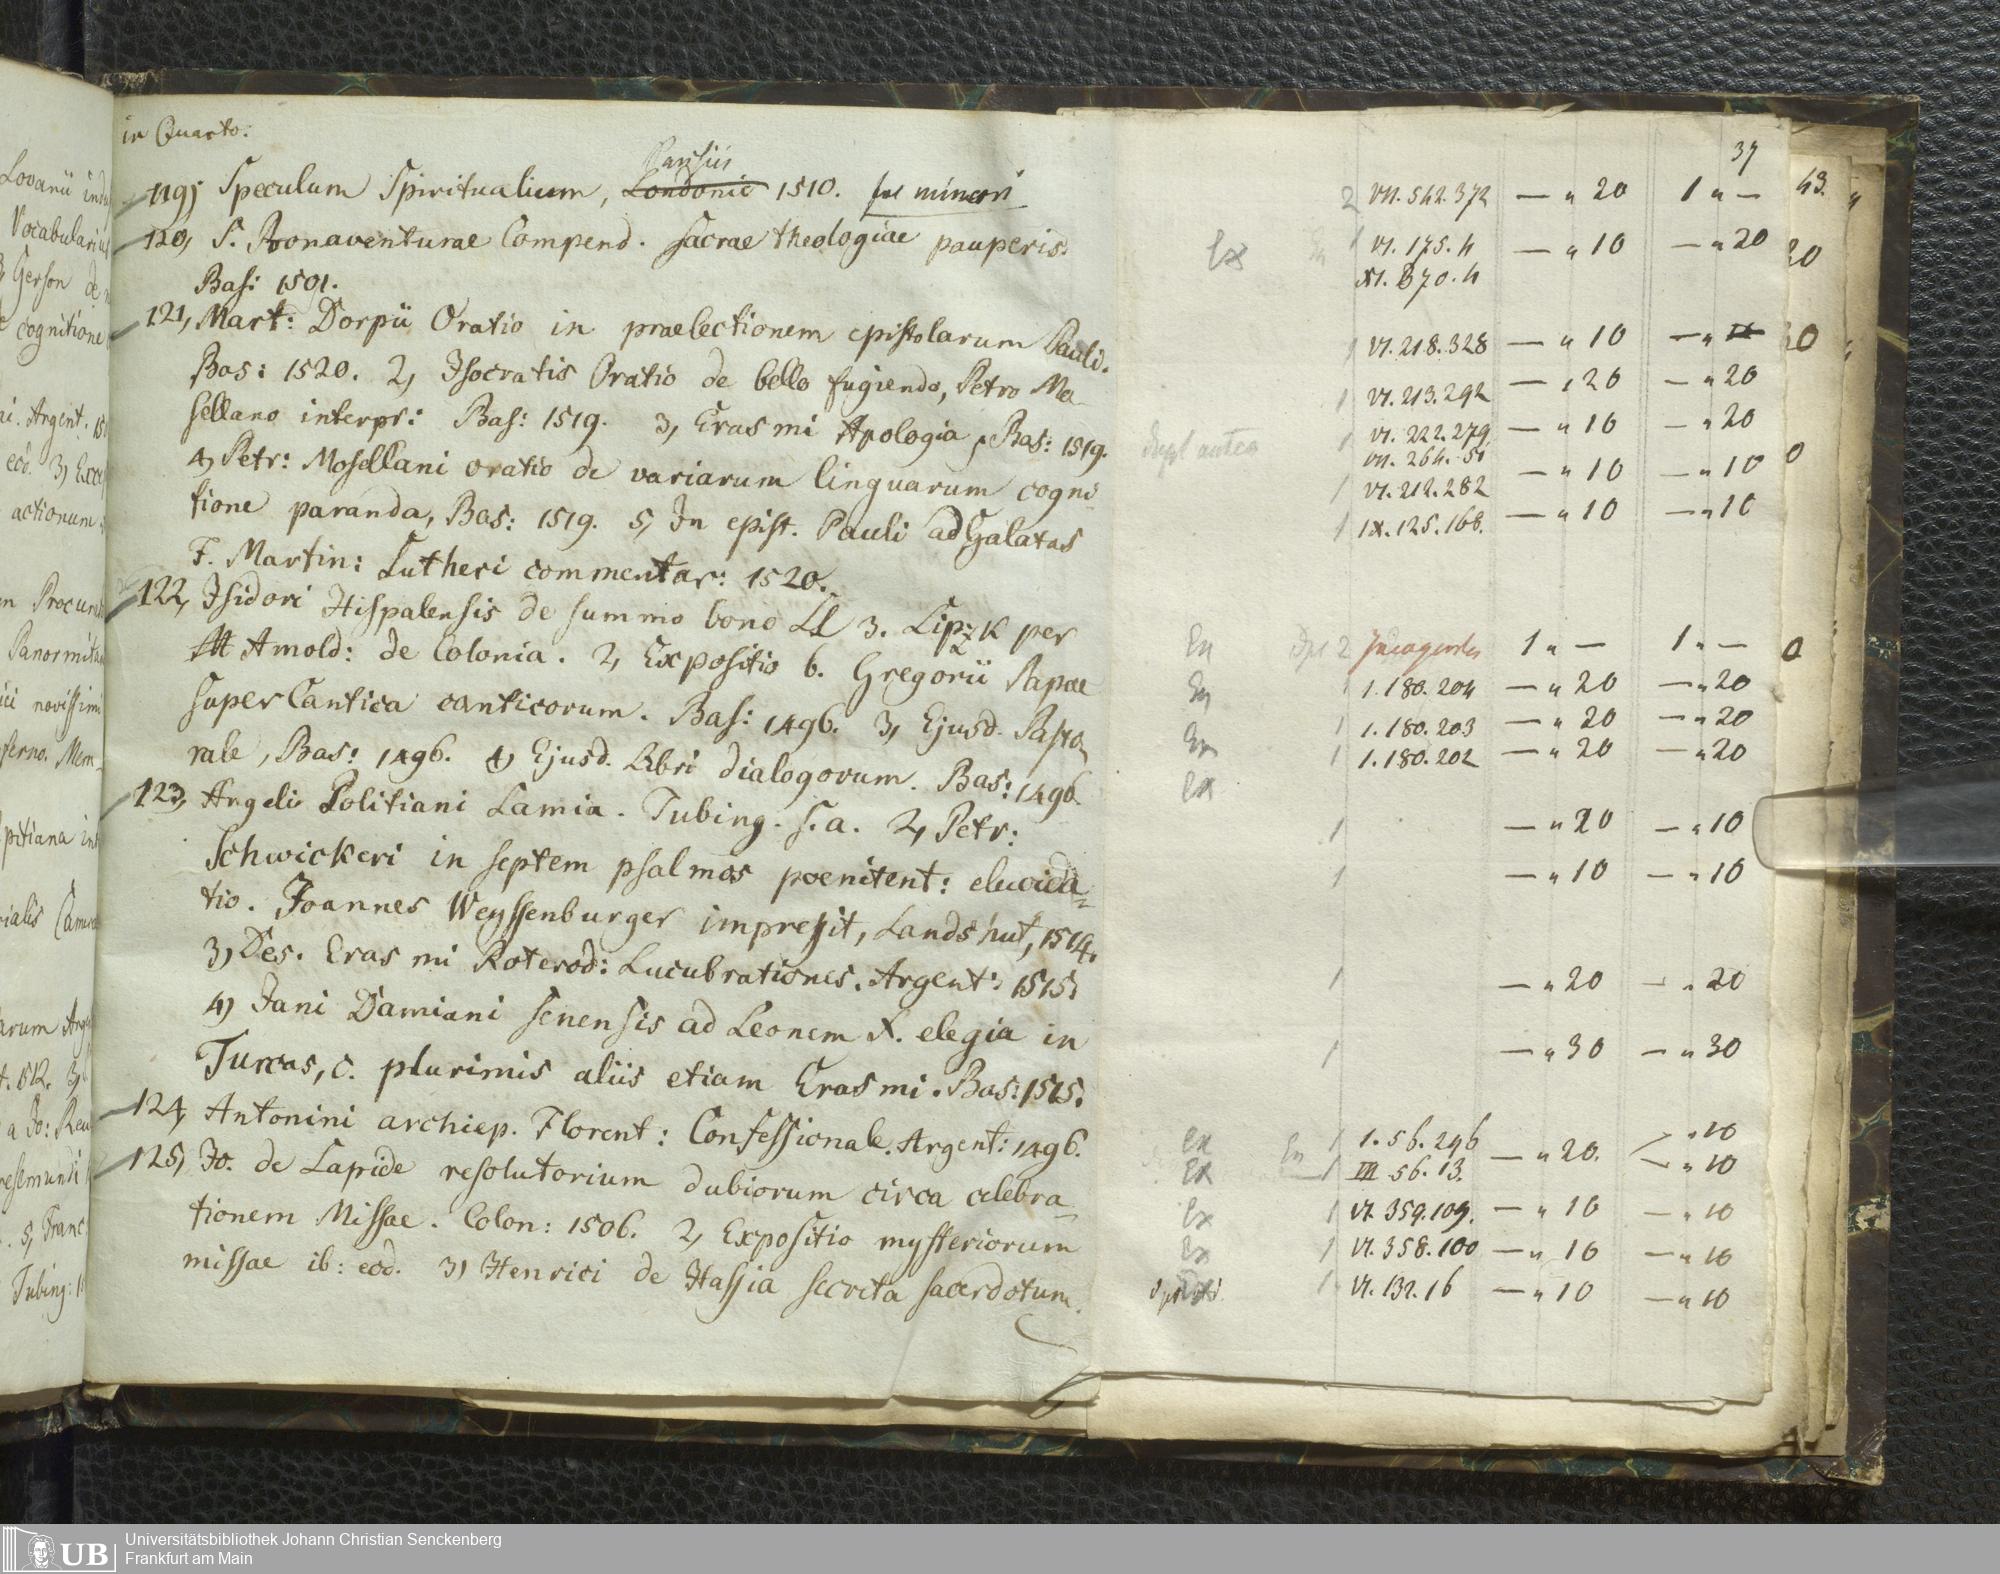 in Quarto.
37
Parisiis
119, Speculum Spiritualium, Londonie 1510. fol minori 2 VII. 542. 372 — " 20 1 " —
120, S. Bonaventurae Compend. sacrae theologiae pauperis. Ex 1 VI. 175. 4 — " 10 — " 20
Bas: 1501. XI. 870. 4
121, Mart: Dorpii Oratio in praelectionem epistolarum Pauli. 1 VI. 218. 328 — " 10
Bas: 1520. 2, Isocratis Oratio de bello fugiendo, Petro Mo 1 VI. 213. 292 — " 20 — " 20
sellano interpr: Bas: 1519. 3, Erasmi Apologia, Bas: 1519. 1 VI. 222. 279. — " 10 — " 20
VII. 264. 51
4, Petr: Mosellani oratio de variarum linguarum cogni 1 VI. 212. 282 — " 10 — " 10
tione paranda, Bas: 1519. 5, In epist. Pauli ad Galatas 1 IX. 125. 168. — " 10 — " 10
F. Martin: Lutheri commentar: 1520.
122, Isidori Hispalensis de summo bono LL 3. Lipzk per En 2 1 " — 1 " —
Arnold: de Colonia. 2, Expositio b. Gregorii Papae 1 1. 180. 204 — " 20 — " 20
super Cantica canticorum. Bas: 1496. 3, Ejusd. Pasto 1 1. 180. 203 — " 20 — " 20
rale, Bas: 1496. 4, Ejusd. Libri dialogorum. Bas: 1496. Ex 1 1. 180. 202 — " 20 — " 20
123, Angeli Politiani Lamia. Tubing. s. a. 2, Petr: 1 — " 20 — " 10
Schwickeri in septem psalmos poenitent: elucida= 1 — " 10 — " 10
tio. Joannes Weyssenburger impressit, Landshut, 1514.
3, Des. Erasmi Roterod: Lucubrationes. Argent: 1515. 1 — " 20 — " 20
4, Jani Damiani senensis ad Leonem X. elegia in 1 — " 30 — " 30
Turcas, c. plurimis aliis etiam Erasmi. Bas: 1515.
124, Antonini archiep. Florent: Confessionale. Argent: 1496. Ex En 1 1. 56. 296 — " 20. " 10
Ex 1 III 56. 13. " 10
125, Jo. de Lapide resolutorium dubiorum circa celebra= Ex 1 VI. 359. 109. — " 10 — " 10
tionem Missae. Colon: 1506. 2, Expositio mysteriorum Ex 1 VI. 358. 100 — " 10 — " 10
missae ib: eod. 3, Henrici de Hassia secreta sacerdotum. 1 VI. 132. 16 — " 10 — " 10
Universitätsbibliothek Johann Christian Senckenberg
Frankfurt am Main
UB